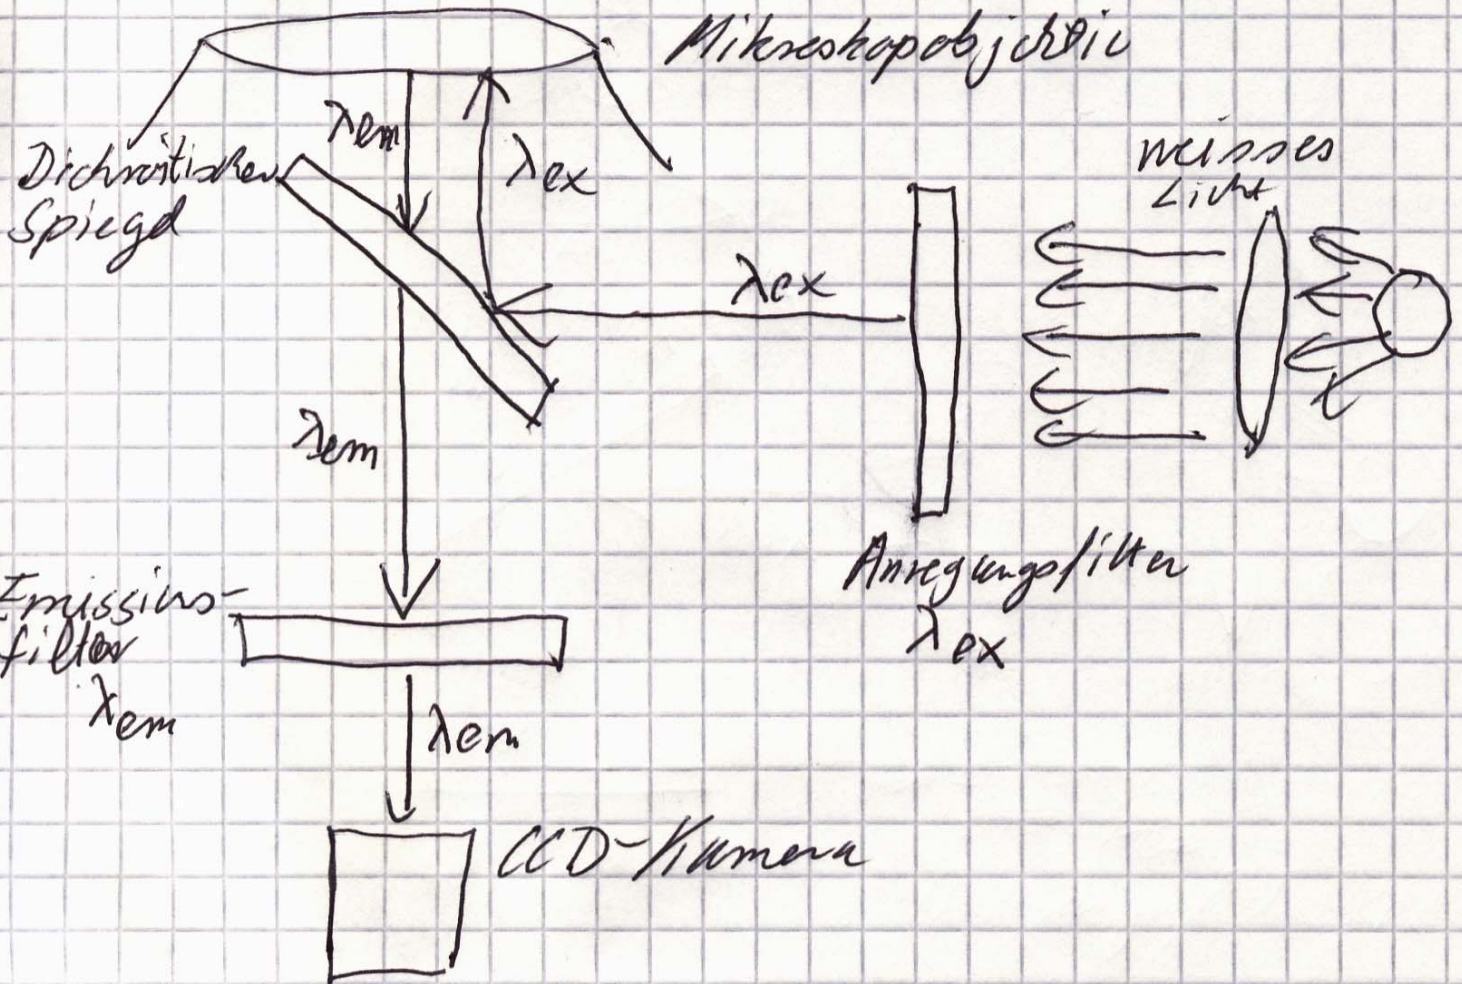 Mikroskopobjektiv
λem
λex
Dichroitischer
Spiegel
weisses
Licht
λex
λem
Anregungsfilter
λex
Emissions-
filter
λem
λem
CCD-Kamera